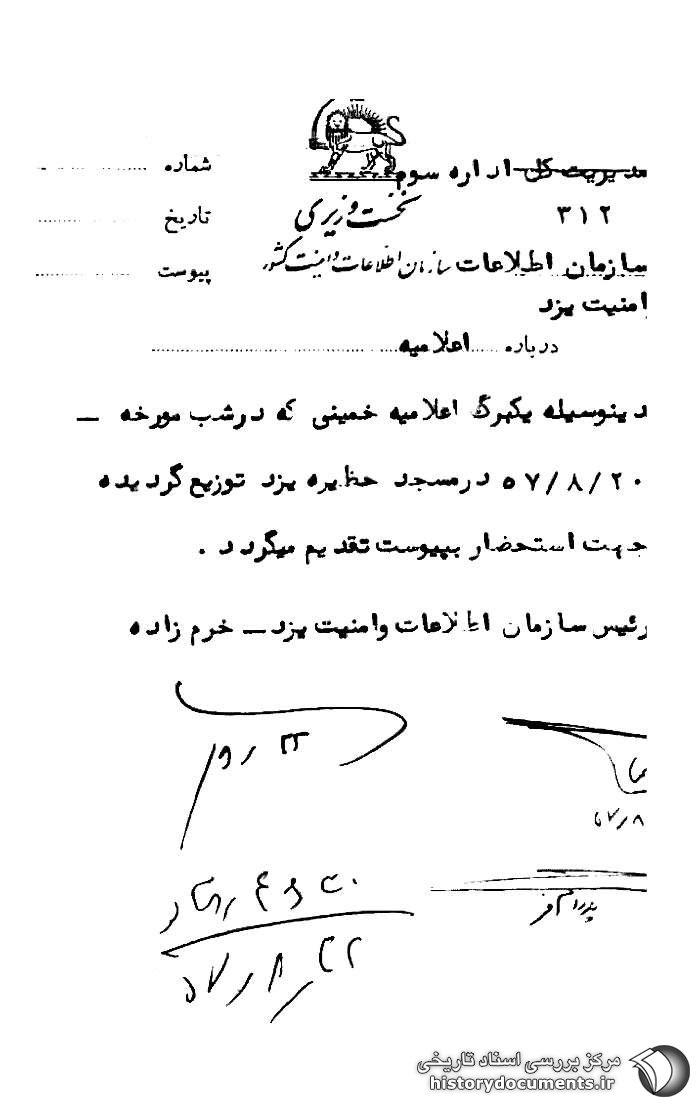 مدیریت کل اداره سوم
شماره
۳۱۲
نخست وزیری
تاریخ
سازمان اطلاعات
سازمان اطلاعات و امنیت کشور
پیوست
وامنیت یزد
درباره اعلامیه
بدینوسیله یکبرگ اعلامیه خمینی که درشب مورخه –
۵۷/۸/۲۰ درمسجد حظیره یزد توزیع گردیده
جهت استحضار بپیوست تقدیم میگردد .
رئیس سازمان اطلاعات وامنیت یزد – خرم زاده
۵۷/۸/۲۲
مرکز بررسی اسناد تاریخی
historydocuments.ir